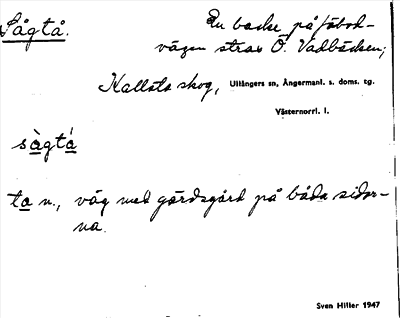 Sågtå.
En backe på fäbod-
vägen strax Ö. Vadbäcken;
Kallsta skog, Ullångers sn, Ångermanl. s. doms. tg.
Västernorrl. l.
sàgtá
ta n., väg med gärdsgård på båda sidor-
na.
Sven Hiller 1947